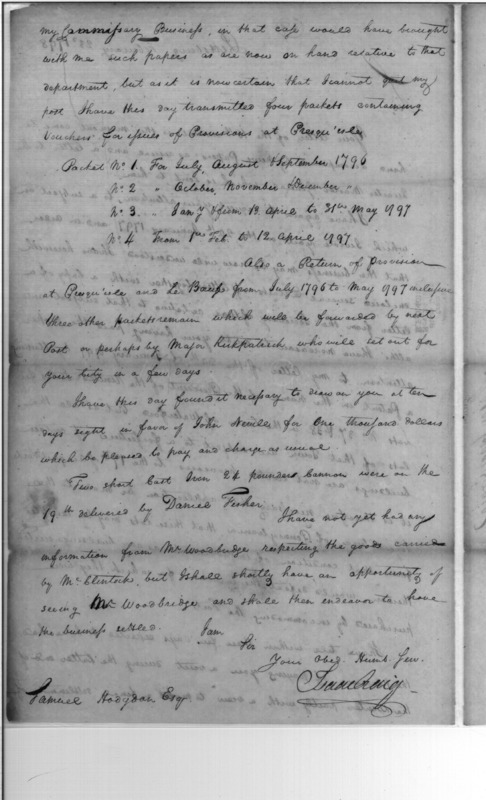 my Commissary Business, in that case would have brought
with me such papers as are now on hand relative to that
department, but as it is now certain that I cannot quit my
post I have this day transmitted four packets containing
Vouchers for issues of Provisions at Presqu'isle
Packet No. 1. For July, August & September 1796
No. 2 " October, November & December
No. 3 " Jany. & from 13 April to 31st May 1797
No. 4 From 1st Feb. to 12 April 1797.
Also a Return of Provision
at Presqu'isle and Le Beuff from July 1796 to May 1797 inclusive
three other packets remain which will be forwarded by next
Post or perhaps by Major Kirkpatrick who will set out for
your City in a few days.
I have this day found it necessary to draw on you at ten
days sight in favor of John Neville for One thousand dollars
which be pleased to pay and charge as usual.
Two short Cast Iron 24 pounders Cannon were on the
19th delivered by Daniel
I have not yet had any
information from Mr. Woodbridge respecting the goods carried
by Mr. but I shall shortly have an opportunity of
seeing Mr. Woodbridge and shall then endeavor to have
the business settled. I am
Sir
Your Obed. Humb. Serv.
Isaac Craig
Samuel Hodgdon Esqr